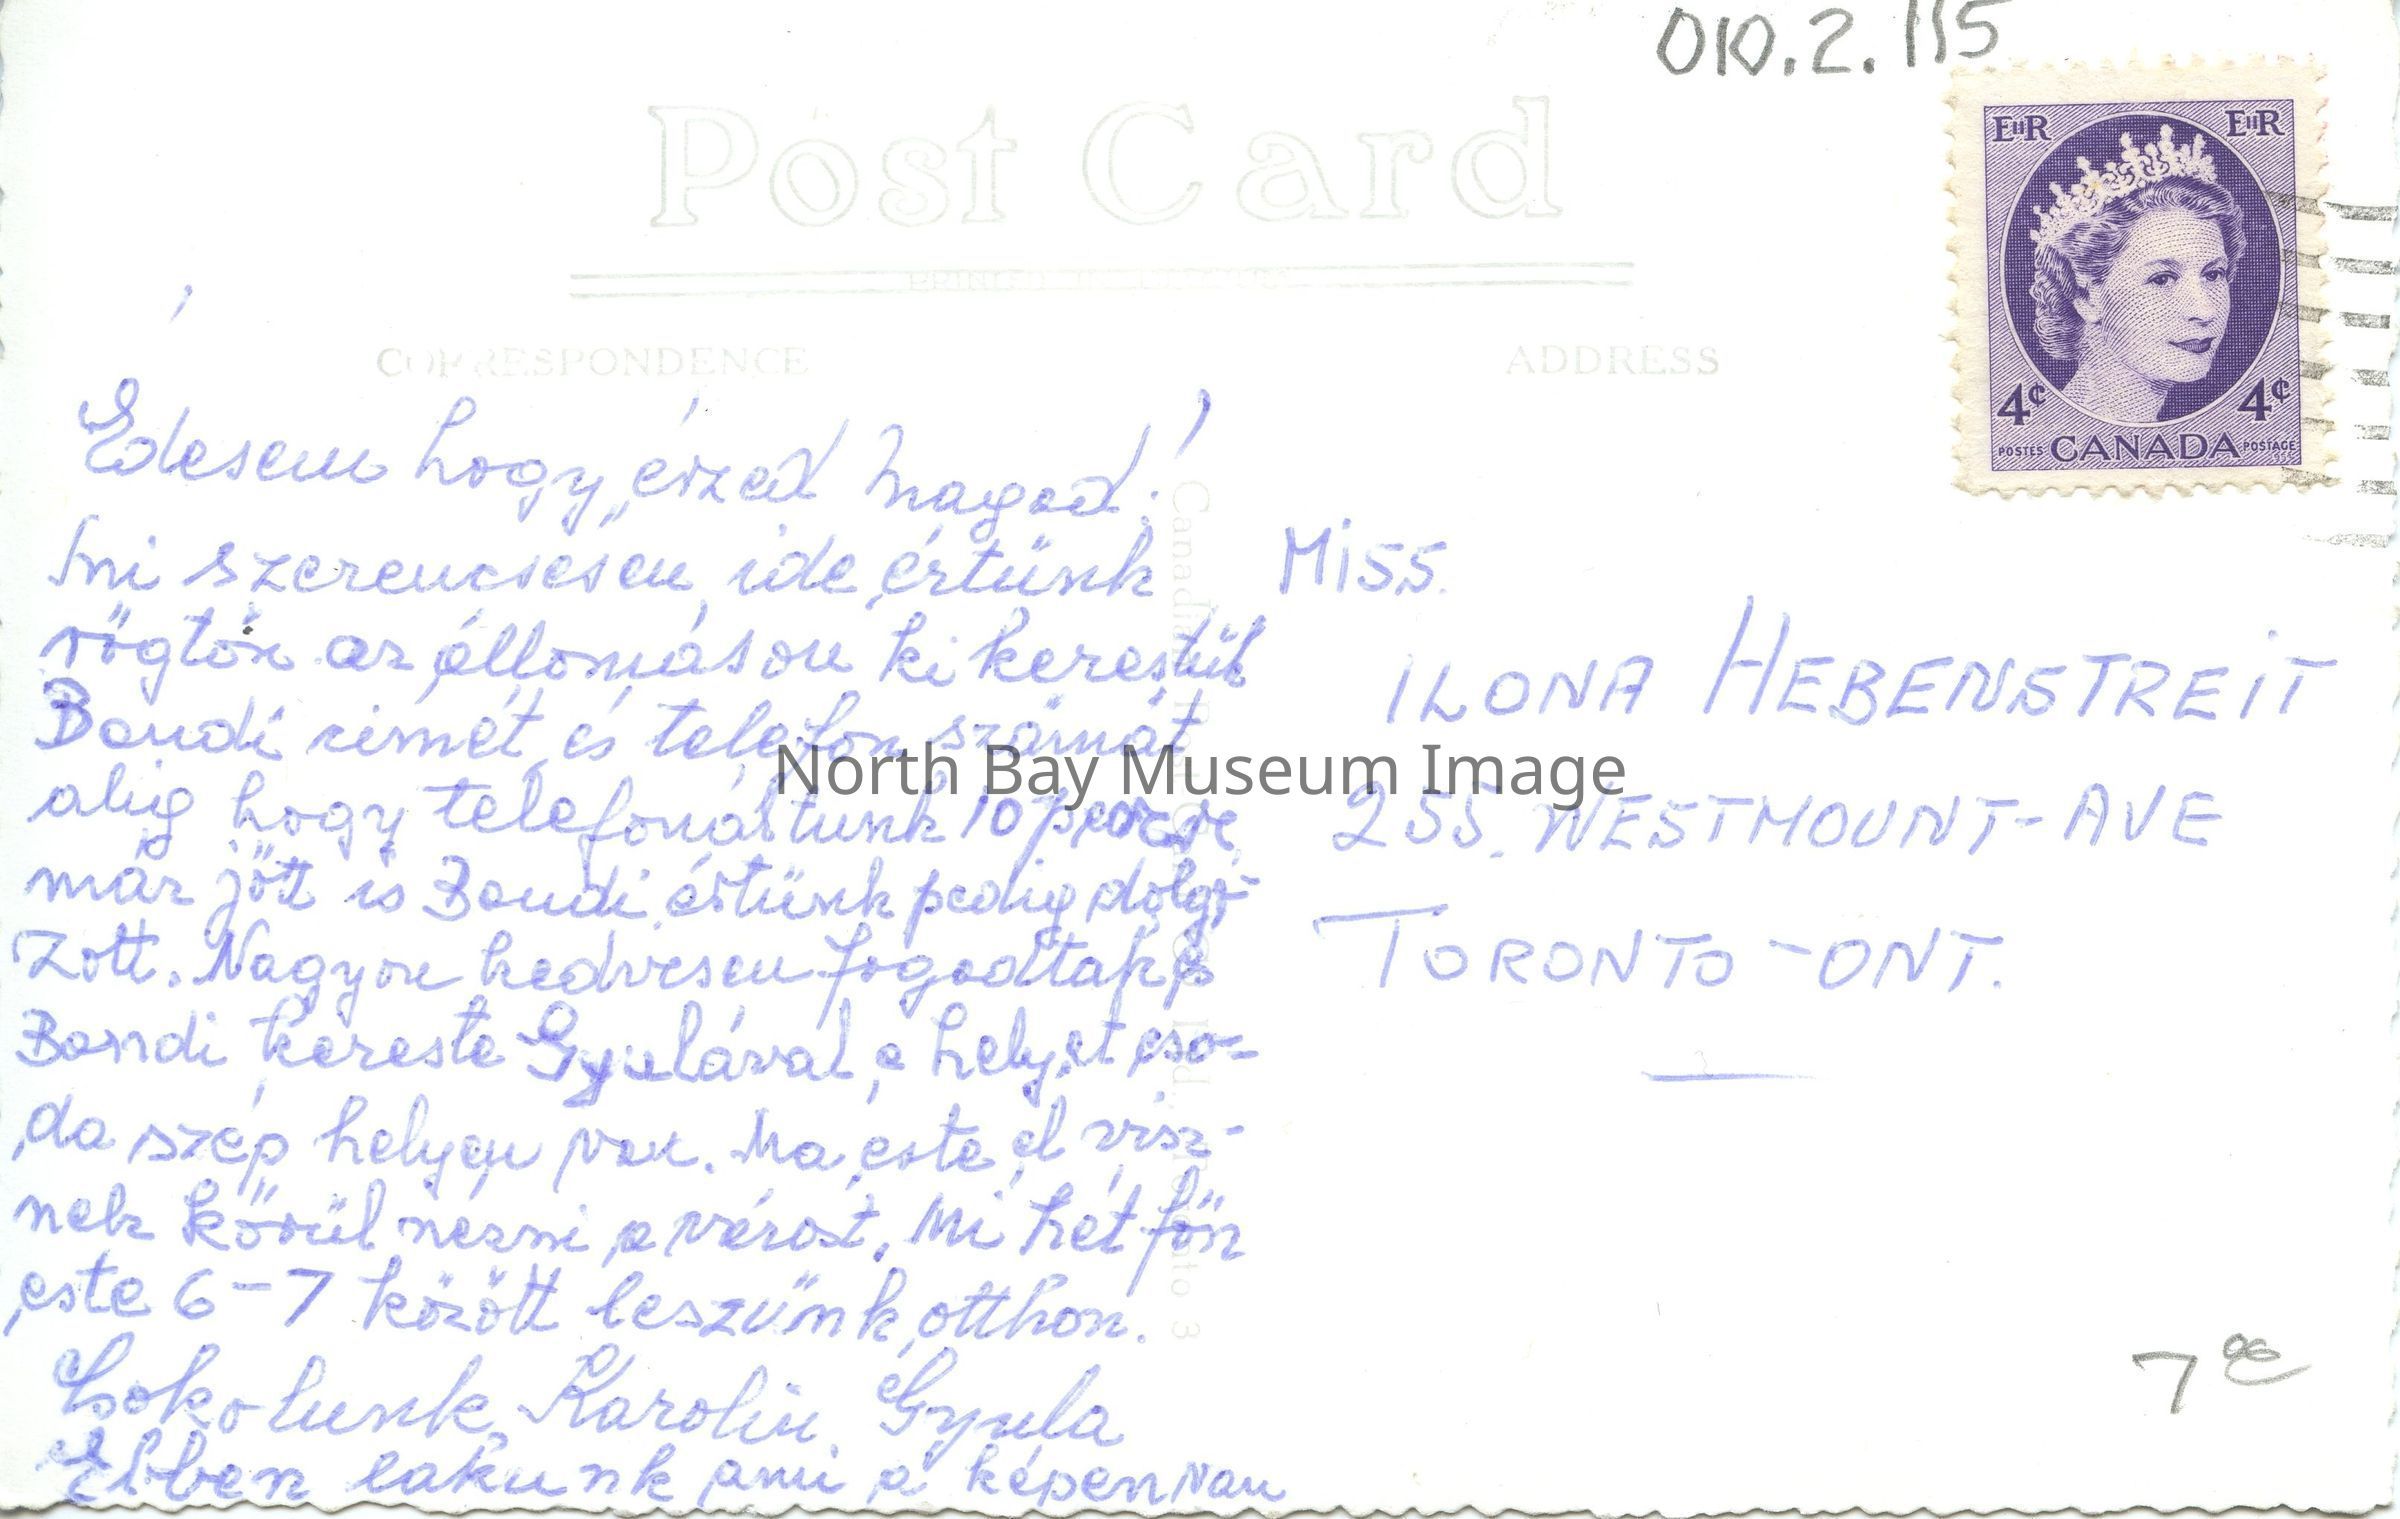 010.2.115
Post Card
CORRESPONDENCE
ADDRESS
EIIR EIIR
4¢ 4¢
POSTES CANADA POSTAGE
Édesem hogy érzed magad!
mi szerencsésen ide értünk
rögtön az állomáson ki kerestük
Bandi cimét és telefon számát
alig hogy telefonáltunk 10 percre
már jött is Bandi értünk pedig dolgo-
zott. Nagyon kedvesen fogadtak
Bandi kereste Gyulával a helyet cso-
da szép helyen van. Ma este el visz-
nek körül nézni a várost. Mi hét főn
este 6-7 között leszünk otthon.
Csokolunk Karolin Gyula
Ebben lakunk ami a képen van
MISS.
ILONA HEBENSTREIT
255. WESTMOUNT-AVE
TORONTO-ONT.
North Bay Museum Image